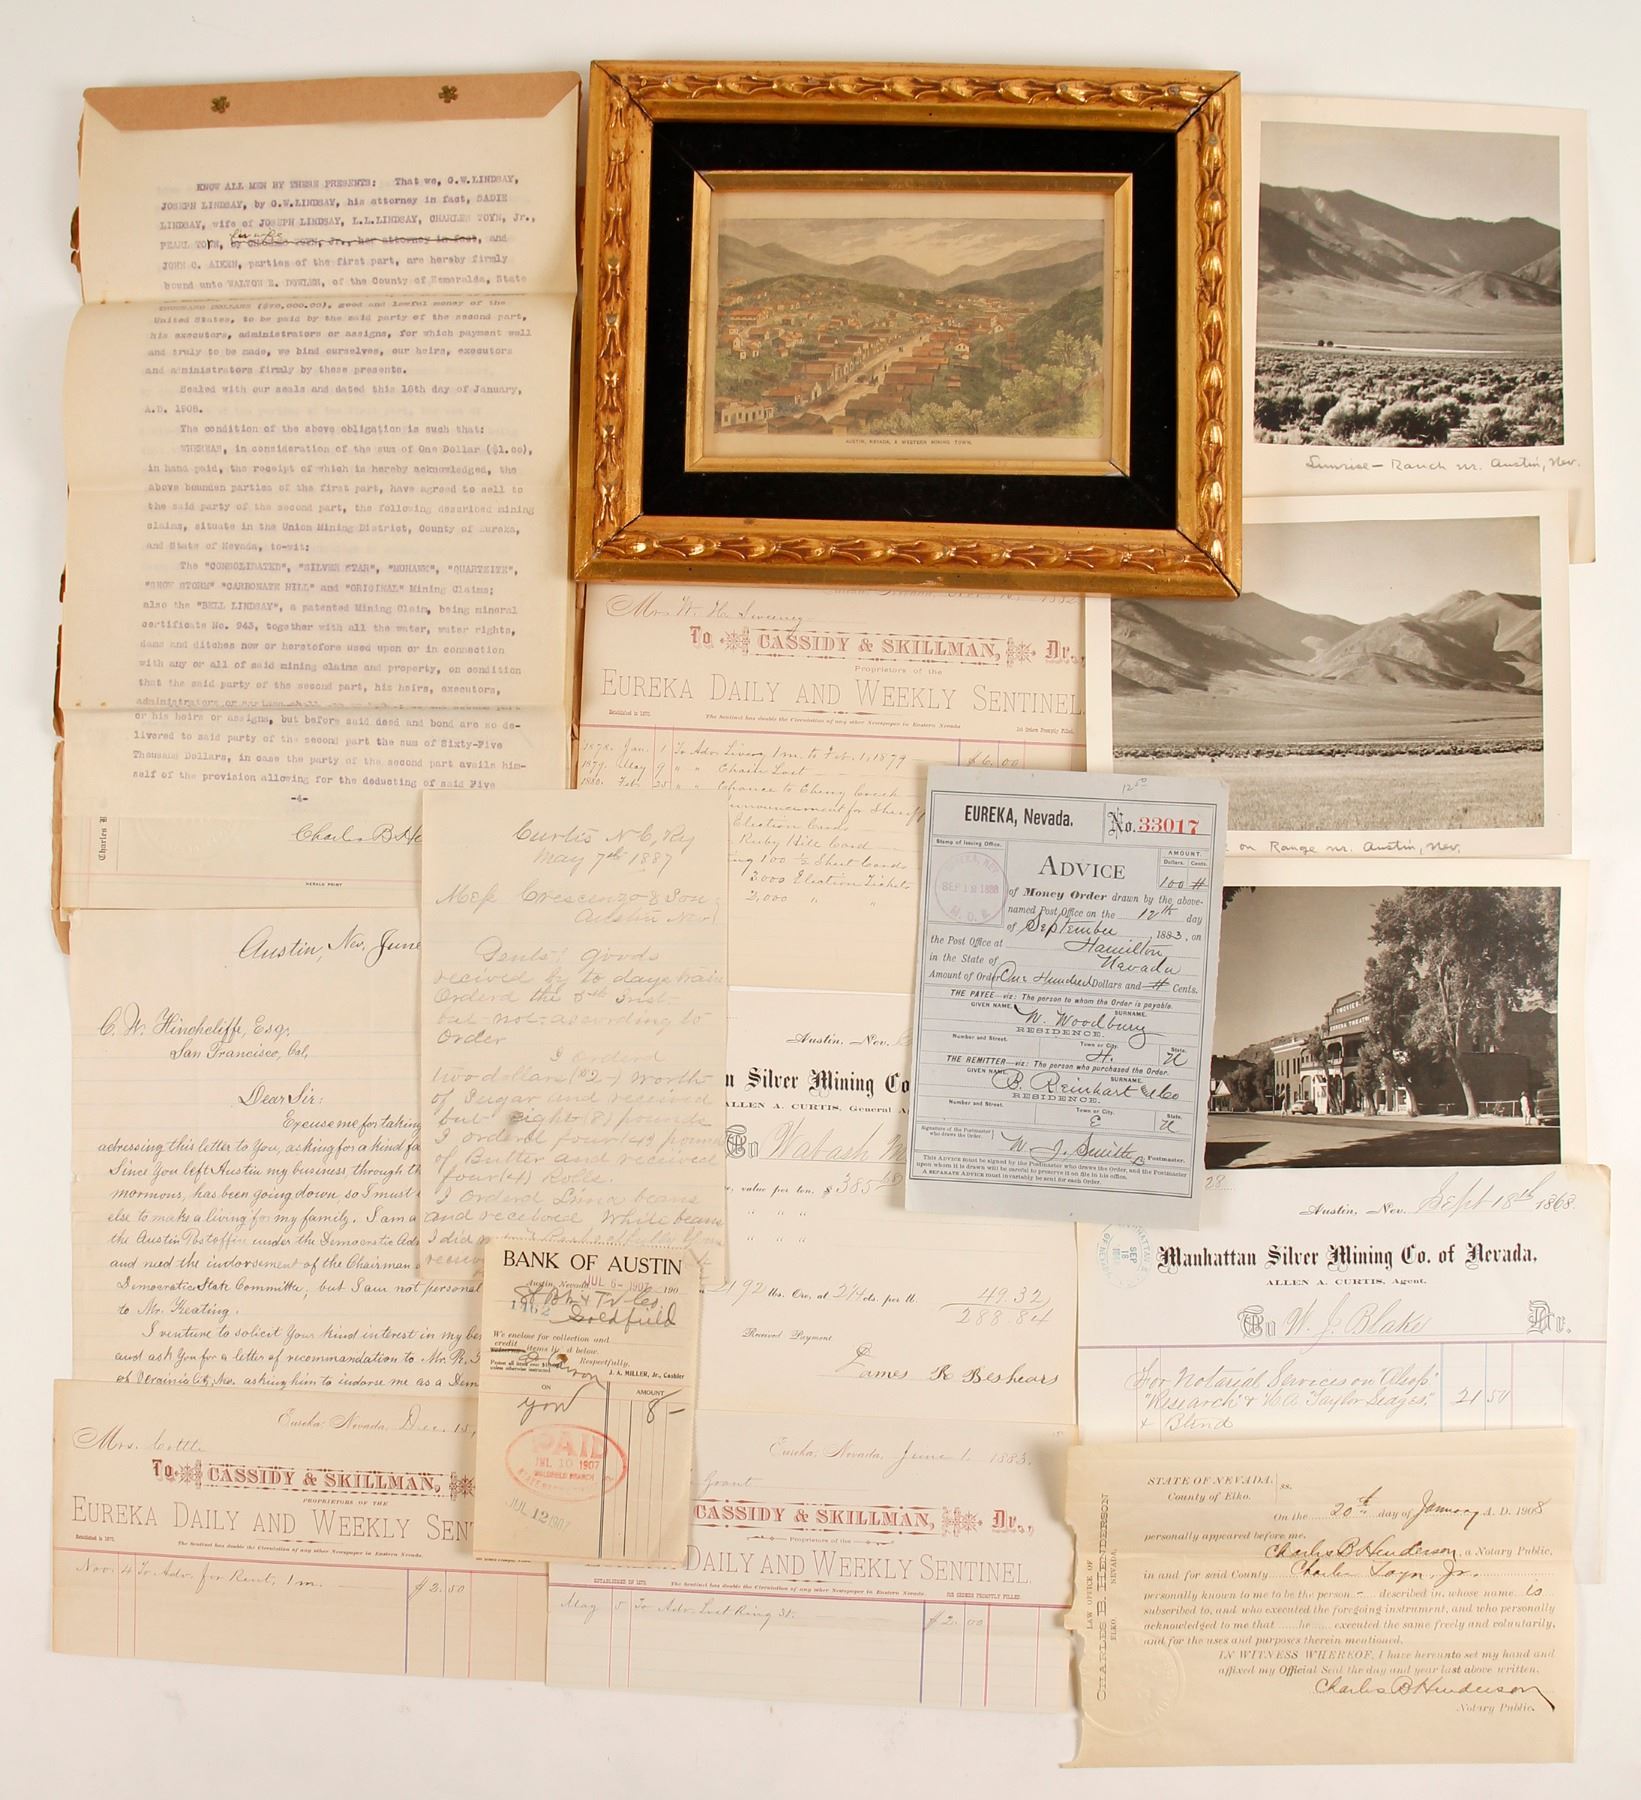 KNOW ALL MEN BY THESE PRESENTS: That we, G.W.LINDSAY,
JOSEPH LINDSAY, by G.W.LINDSAY, his attorney in fact, SADIE
LINDSAY, wife of JOSEPH LINDSAY, L.L.LINDSAY, CHARLES TOYN, Jr.,
PEARL TOYN, by CHARLES TOYN, Jr., her attorney in fact, and
JOHN C. AIKEN, parties of the first part, are hereby firmly
bound unto WALTON E. DOWLEN, of the County of Esmeralda, State
THOUSAND DOLLARS ($70,000.00), good and lawful money of the
United States, to be paid by the said party of the second part,
his executors, administrators or assigns, for which payment well
and truly to be made, we bind ourselves, our heirs, executors
and administrators firmly by these presents.
Sealed with our seals and dated this 18th day of January,
A.D. 1908.
The condition of the above obligation is such that:
WHEREAS, in consideration of the sum of One Dollar ($1.00),
in hand paid, the receipt of which is hereby acknowledged, the
above bounden parties of the first part, have agreed to sell to
the said party of the second part, the following described mining
claims, situate in the Union Mining District, County of Eureka,
and State of Nevada, to-wit:
The "CONSOLIDATED", "SILVER STAR", "MOHAWK", "QUARTZITE",
"SNOW STORM" "CARBONATE HILL" and "ORIGINAL" Mining Claims;
also the "BELL LINDSAY", a patented Mining Claim, being mineral
certificate No. 943, together with all the water, water rights,
dams and ditches now or heretofore used upon or in connection
with any or all of said mining claims and property, on condition
that the said party of the second part, his heirs, executors,
administrators or
or his heirs or assigns, but before said deed and bond are so de-
livered to said party of the second part the sum of Sixty-Five
Thousand Dollars, in case the party of the second part avails him-
self of the provision allowing for the deducting of said Five
-4-
Charles B He
Charles B
HERALD PRINT
AUSTIN, NEVADA, A WESTERN MINING TOWN.
Sunrise - Ranch nr. Austin, Nev.
on Range nr. Austin, Nev.
EUREKA THEATRE
Mr. W. H. Sweeney
To CASSIDY & SKILLMAN, Dr.,
Proprietors of the
EUREKA DAILY AND WEEKLY SENTINEL
Established in 1870.
The Sentinel has double the Circulation of any other Newspaper in Eastern Nevada
Job Orders Promptly Filled.
1878. Jan. 1 To Adv. Living 1 m. to Feb. 1, 1879 $6.00
1879. May 9 " " Chain Lost
1880. Feb. 25 " " Chance to Cherry Creek
nnouncement for Sheriff
Election Cards
Ruby Hill Card
ing 100 1/2 Sheet Cards
3,000 Election Tickets
2,000 " "
12 50
EUREKA, Nevada.
No. 33017
Stamp of Issuing Office.
AMOUNT.
Dollars. Cents.
100 #
ADVICE
EUREKA, NEV.
SEP 12 1883
M. O. B.
of Money Order drawn by the above-
named Post Office on the 12th day
of September 1883, on
the Post Office at Hamilton
in the State of Nevada
Amount of Order One Hundred Dollars and # Cents.
THE PAYEE—viz: The person to whom the Order is payable.
GIVEN NAME. SURNAME.
W. Woodbury
RESIDENCE.
Number and Street. Town or City. State.
H. N
THE REMITTER—viz: The person who purchased the Order.
GIVEN NAME. SURNAME.
B. Reinhart & Co
RESIDENCE.
Number and Street. Town or City. State.
E N
Signature of the Postmaster
who draws the Order.
W. J. Smith, Postmaster.
This ADVICE must be signed by the Postmaster who draws the Order, and the Postmaster
upon whom it is drawn will be careful to preserve it on file in his office.
A SEPARATE ADVICE must invariably be sent for each Order.
Curtis N C, Ry
May 7th 1887
Crescenzo & Son
Austin Nev
Gents; goods
recived by to days train
Orderd the 5th Inst
but not according to
Order
I orderd
two dollars ($2-) worth
of Sugar and received
but eight (8) pounds
I orderd four (4) pound
of Butter and received
four (4) Rolls.
I orderd Lima beans
and received White beans
I did n
Austin, Nev. June
C. W. Hinchcliffe, Esq,
San Francisco, Cal,
Dear Sir:
Excuse me for taking
adressing this letter to You, asking for a kind fa
Since You left Austin my business, through th
mormons, has been going down, so I must
else to make a living for my family. I am a
the Austin Postoffice under the Democratic Ad
and need the indorsement of the Chairman
Democratic State Committee, but I am not personal
to Mr. Keating.
I venture to solicit Your kind interest in my be
and ask You for a letter of recommandation to Mr. R.
of Virginia City, Nev. asking him to indorse me as a Dem
Austin, Nev.
n Silver Mining Co
ALLEN A. CURTIS, General A
To Wabash M
value per ton, $ 385
2192 lbs. Ore, at 2 1/4 cts. per lb. 49.32
288.84
Received Payment
James R Beshears
28
Austin, Nev. Sept 18th 1868.
Manhattan Silver Mining Co. of Nevada,
ALLEN A. CURTIS, Agent.
To W. J. Blake Dr.
For Notarial Services on "Alsop"
"Research" & "W A Taylor Leages", 21 50
& Blind
BANK OF AUSTIN
Austin, Nevada JUL 6- 1907 190
1462
Goldfield
We enclose for collection and
credit items listed below.
Respectfully,
J. A. MILLER, Jr., Cashier
ON AMOUNT
You 8 -
PAID
JUL 10 1907
GOLDFIELD BRANCH
JUL 12 1907
Eureka, Nevada, Dec. 15,
Mrs. Cottle
To CASSIDY & SKILLMAN,
PROPRIETORS OF THE
EUREKA DAILY AND WEEKLY SEN
Established in 1870.
The Sentinel has double the Circulation of any other Newspaper in Eastern Nevada.
Nov. 4 To Adv. for Rent, 1 m. $2.50
Eureka, Nevada, June 1, 1883.
Grant
CASSIDY & SKILLMAN, Dr.,
Proprietors of the
DAILY AND WEEKLY SENTINEL
ESTABLISHED IN 1870
The Sentinel has double the Circulation of any other Newspaper in Eastern Nevada.
JOB ORDERS PROMPTLY FILLED
May 5 To Adv. Lost Ring 3t. $2.00
LAW OFFICE OF
CHARLES B. HENDERSON
ELKO, NEVADA
STATE OF NEVADA,
County of Elko. ss.
On the 20th day of January A. D. 1908
personally appeared before me,
Charles B Henderson, a Notary Public,
in and for said County Charles Toyn, Jr.
personally known to me to be the person - described in, whose name is
subscribed to, and who executed the foregoing instrument, and who personally
acknowledged to me that he executed the same freely and voluntarily,
and for the uses and purposes therein mentioned.
IN WITNESS WHEREOF, I have hereunto set my hand and
affixed my Official Seal the day and year last above written.
Charles B Henderson
Notary Public.